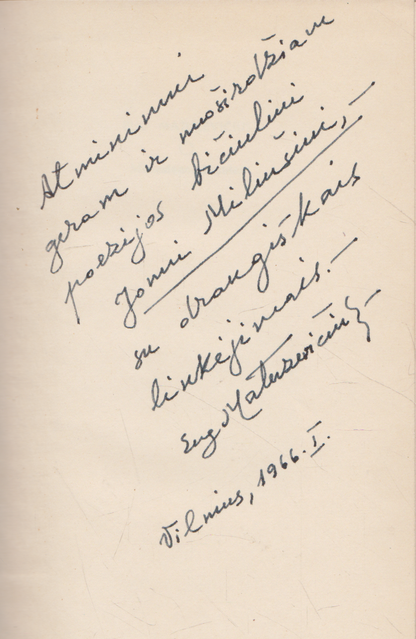 Atminimui
geram ir nuoširdžiam
poezijos bičiuliui
Jonui Miliušiui, —
su draugiškais
linkėjimais. —
Eug Matuzevičius —
Vilnius, 1966. I.